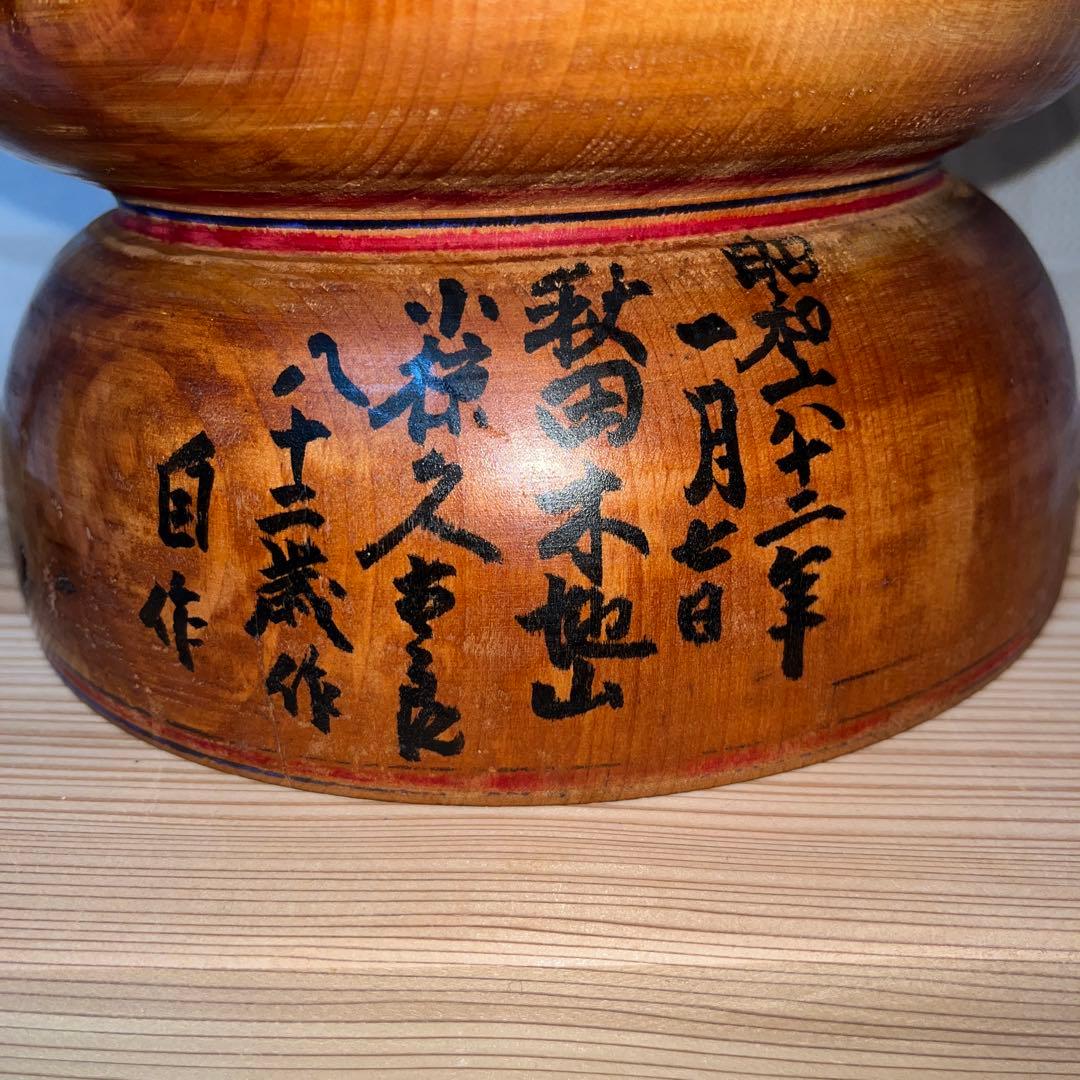 昭和六十二年
一月七日
秋田木地山
小椋久太郎
八十二歳作
自作